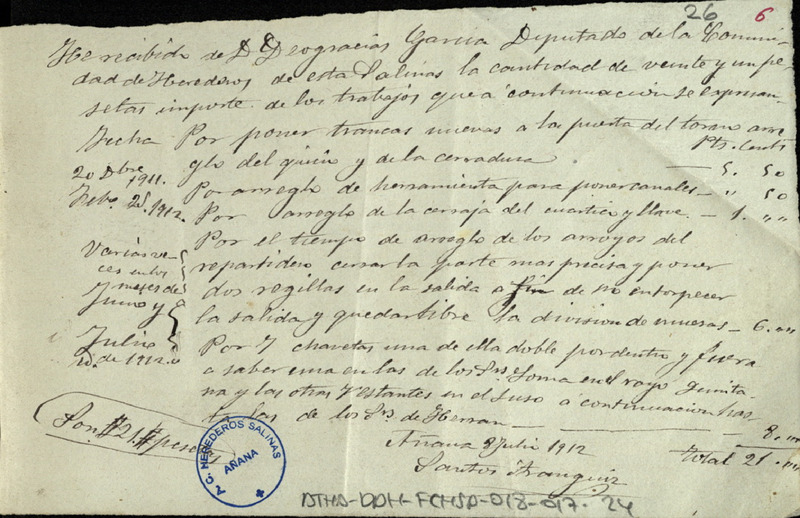 26 6
He recibido de D. Deogracias Garcia Diputado de la Comuni-
dad de Herederos de esta Salinas la cantidad de veinte y un pe-
setas importe de los trabajos que a continuación se expresan
Fecha Por poner trancas nuevas a la puerta del torno arre
Pts. Cents
glo del quicio y de la cerradura 5. 50
20 Dbre 1911.
Por arreglo de herramienta para poner canales - " 50
Feb. 28. 1912.
Por arreglo de la cerraja del cuartico y llave. - 1. ""
Por el tiempo de arreglo de los arroyos del
Varias ve-
ces en los
meses de
Junio y
Julio
de 1912
repartidero cerrar la parte mas precisa y poner
dos regillas en la salida a fin de no entorpecer
la salida y quedar libre la division de mueras - 6. ""
Por 7 chavetas una de ella doble por dentro y fuera
a saber una en las de los Srs. Soma en el royo
na y las otras restantes en el Suso a continuación has-
ta las de los Srs de Herran 8. ""
Son #21# pesetas
total 21. ""
Añana 8 Julio 1912
Santos Aranguiz
A. C. HEREDEROS SALINAS
AÑANA
ATHA-DAH-FCHSA-018-017-24